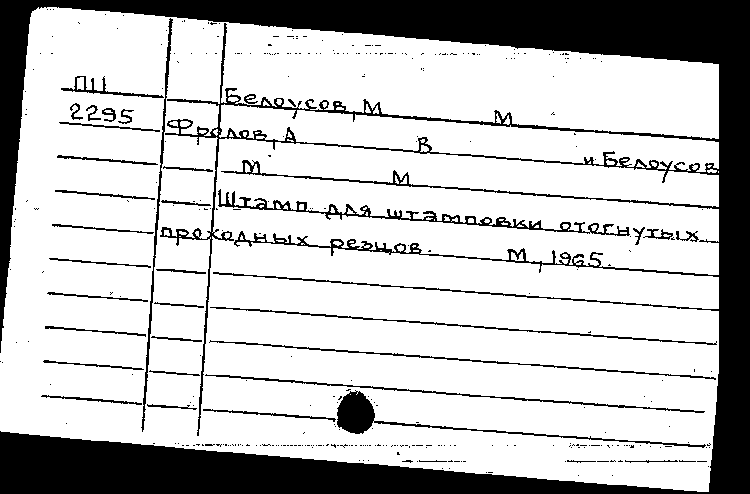 П11
2295
Белоусов, М М
Фролов, А В и Белоусов
М М
Штамп для штамповки отогнутых
проходных резцов. М., 1965.